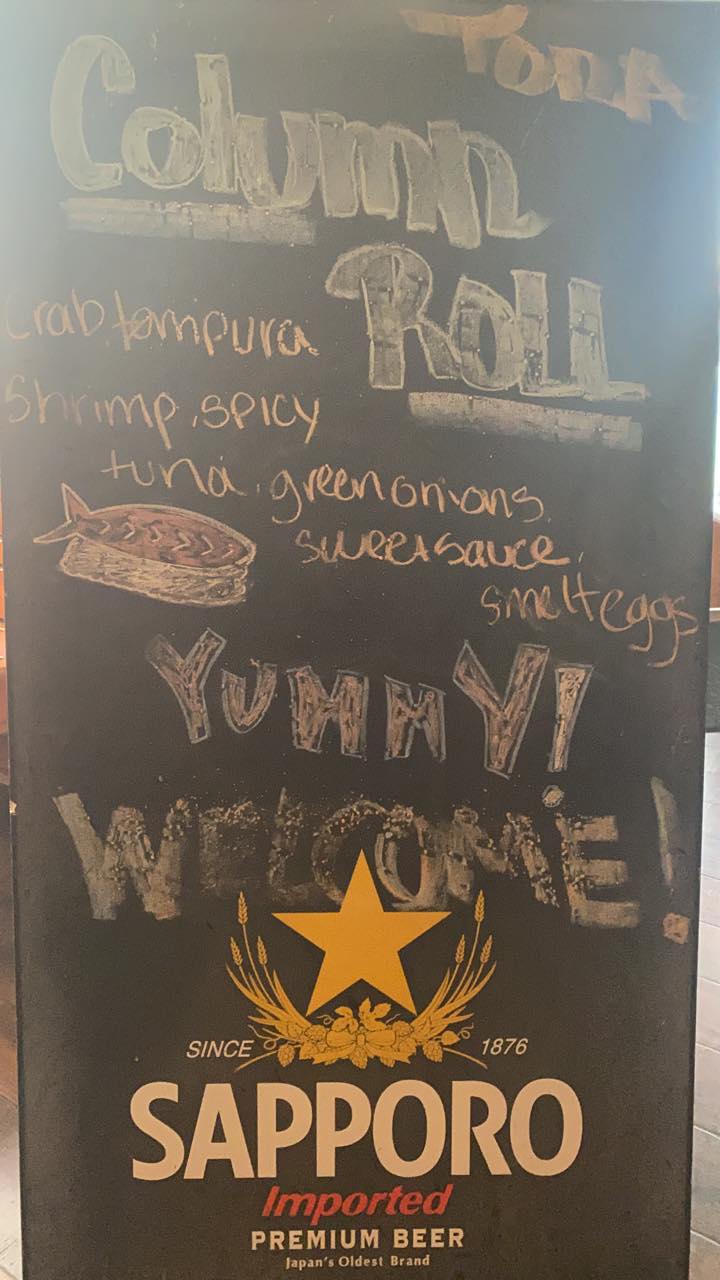 TORA
Column
ROLL
crab, tempura
shrimp, spicy
tuna, green onions,
sweet sauce,
smelt eggs
YUMMY!
WELCOME!
SINCE 1876
SAPPORO
Imported
PREMIUM BEER
Japan's Oldest Brand